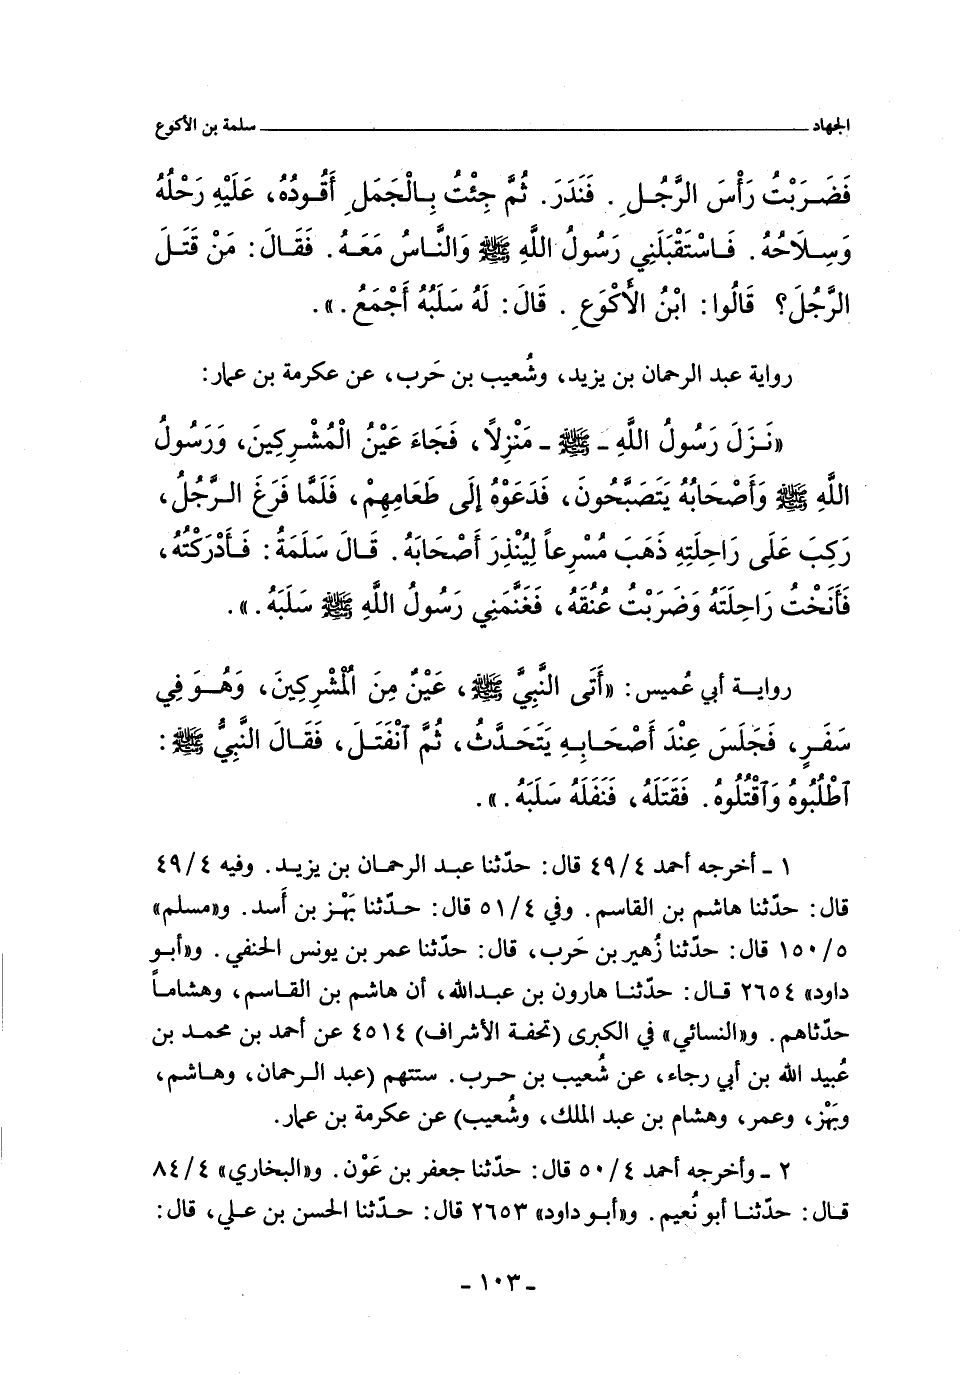 الجهاد ـــــــــــ سلمة بن الأكوع
فَضَرَبْتُ رَأْسَ الرَّجُلِ. فَنَدَرَ. ثُمَّ جِئْتُ بِالْجَمَلِ أَقُودُهُ، عَلَيْهِ رَحْلُهُ
وَسِلَاحُهُ. فَاسْتَقْبَلَنِي رَسُولُ اللَّهِ ﷺ وَالنَّاسُ مَعَهُ. فَقَالَ: مَنْ قَتَلَ
الرَّجُلَ؟ قَالُوا: ابْنُ الْأَكْوَعِ. قَالَ: لَهُ سَلَبُهُ أَجْمَعُ.».
رواية عبد الرحمان بن يزيد، وشُعيب بن حَرب، عن عكرمة بن عمار:
«نَزَلَ رَسُولُ اللَّهِ ـ ﷺ ـ مَنْزِلاً، فَجَاءَ عَيْنُ الْمُشْرِكِينَ، وَرَسُولُ
اللَّهِ ﷺ وَأَصْحَابُهُ يَتَصَبَّحُونَ، فَدَعَوْهُ إلَى طَعَامِهِمْ، فَلَمَّا فَرَغَ الرَّجُلُ،
رَكِبَ عَلَى رَاحِلَتِهِ ذَهَبَ مُسْرِعاً لِيُنْذِرَ أَصْحَابَهُ. قَالَ سَلَمَةُ: فَأَدْرَكْتُهُ،
فَأَنَخْتُ رَاحِلَتَهُ وَضَرَبْتُ عُنُقَهُ، فَغَنَّمَنِي رَسُولُ اللَّهِ ﷺ سَلَبَهُ.».
رواية أبي عُميس: «أَتَى النَّبِيَّ ﷺ، عَيْنٌ مِنَ الْمُشْرِكِينَ، وَهُوَ فِي
سَفَرٍ، فَجَلَسَ عِنْدَ أَصْحَابِهِ يَتَحَدَّثُ، ثُمَّ ٱنْفَتَلَ، فَقَالَ النَّبِيُّ ﷺ:
ٱطْلُبُوهُ وَٱقْتُلُوهُ. فَقَتَلَهُ، فَنَفَلَهُ سَلَبَهُ.».
١ ـ أخرجه أحمد ٤/٤٩ قال: حدّثنا عبد الرحمان بن يزيد. وفيه ٤/٤٩
قال: حدّثنا هاشم بن القاسم. وفي ٤/٥١ قال: حدّثنا بَهْز بن أسد. و«مسلم»
٥/١٥٠ قال: حدّثنا زُهير بن حَرب، قال: حدّثنا عمر بن يونس الحنفي. و«أبو
داود» ٢٦٥٤ قال: حدّثنا هارون بن عبدالله، أن هاشم بن القاسم، وهشاماً
حدّثاهم. و«النسائي» في الكبرى (تحفة الأشراف) ٤٥١٤ عن أحمد بن محمد بن
عُبيد الله بن أبي رجاء، عن شُعيب بن حرب. ستتهم (عبد الرحمان، وهاشم،
وبَهْز، وعمر، وهشام بن عبد الملك، وشُعيب) عن عكرمة بن عمار.
٢ ـ وأخرجه أحمد ٤/٥٠ قال: حدّثنا جعفر بن عَوْن. و«البخاري» ٤/٨٤
قال: حدّثنا أبو نُعيم. و«أبو داود» ٢٦٥٣ قال: حدّثنا الحسن بن علي، قال:
ـ ١٠٣ ـ